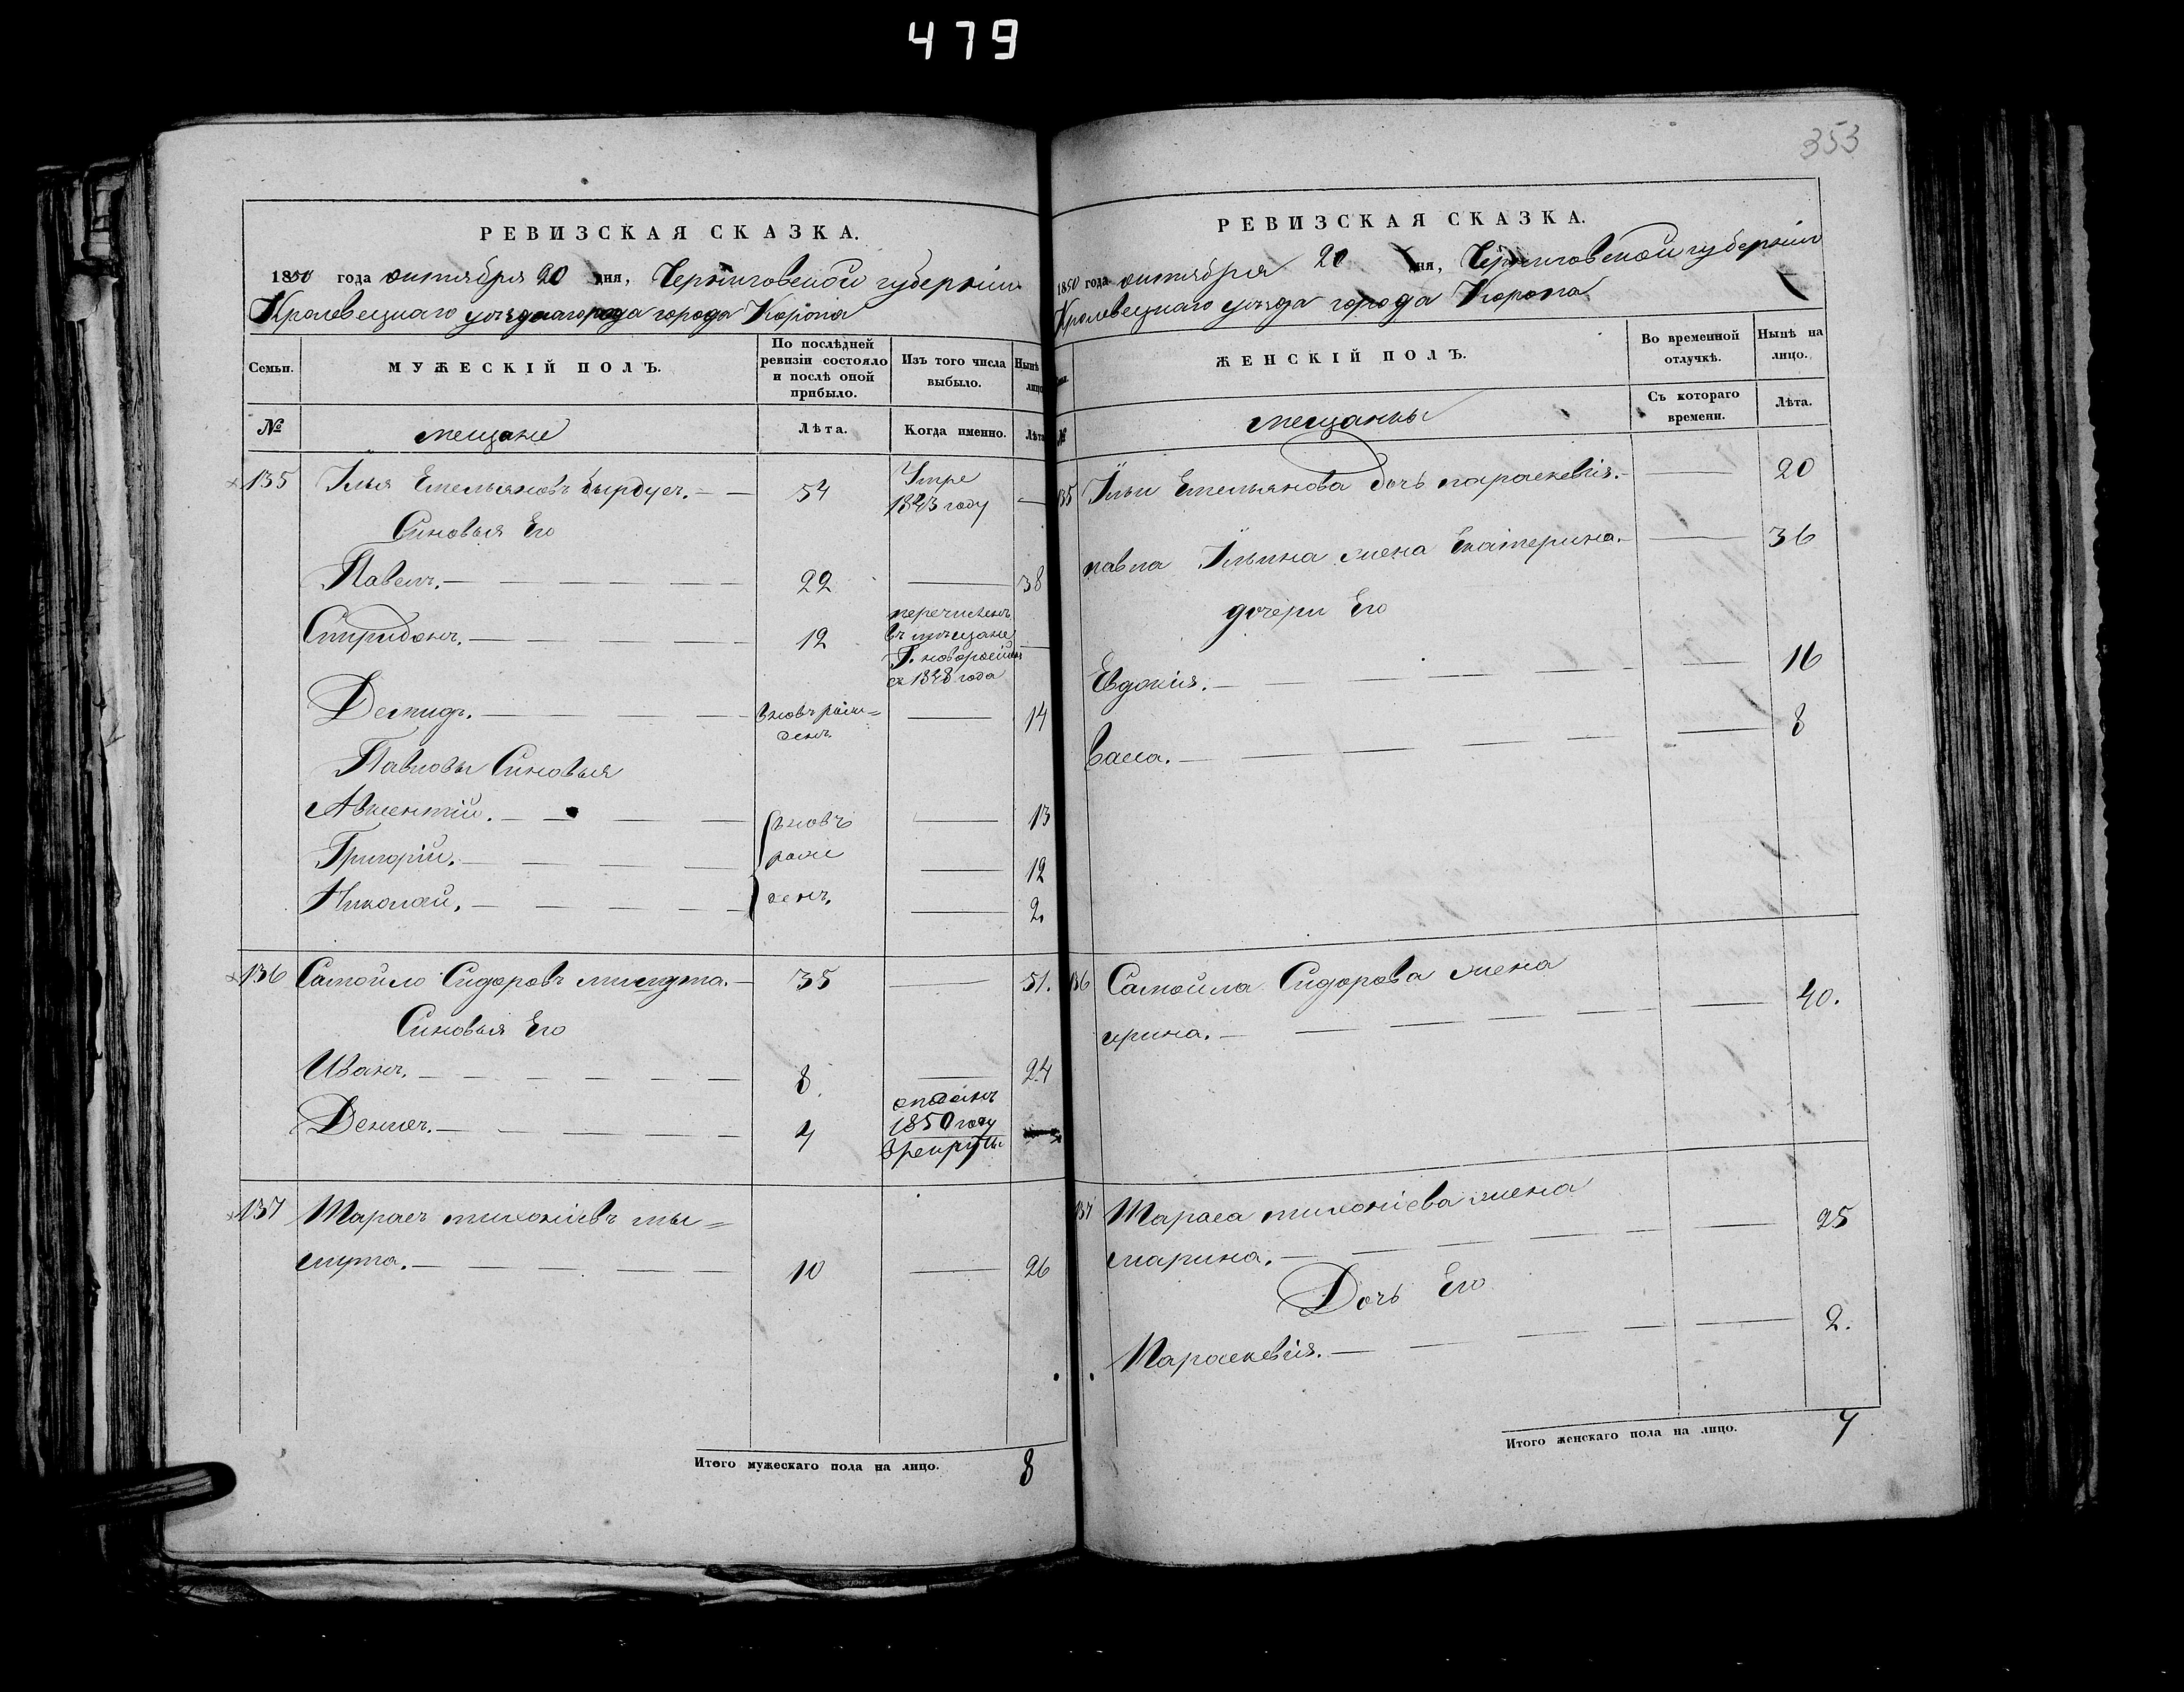 479
353
РЕВИЗСКАЯ СКАЗКА.
1850 года октября 20 дня, Черниговской губернии
Кролевецкаго уѣзда города Коропа
Семьи.
МУЖЕСКІЙ ПОЛЪ.
По послѣдней ревизіи состояло и послѣ оной прибыло.
Изъ того числа выбыло.
Нынѣ лицо
№
мещане
Лѣта.
Когда именно.
Лѣта
135 Илья Емельяновъ 54 Умре 1843 году —
Синовья Его
Павелъ. — 22 — 38
Спиридонъ. — 12 перечисленъ въ мѣщане Г. с 1848 года —
Демидъ. — вновь рожденъ — 14
Павловы Синовья
Авксентій. — вновь — 13
Григорій. — рож — 12
Николай. — денъ. — 2.
136 Самойло Сидоровъ — 35 — 51.
Синовья Его
Иванъ. — 8. — 24
Денисъ. — 4 отданъ 1850 году в рекруты —
137 Тарасъ Тихоніевъ мы=
— 10 — 26
Итого мужескаго пола на лицо. 8
РЕВИЗСКАЯ СКАЗКА.
1850 года октября 20 дня, Черниговской губерніи
Кролевецкаго уѣзда города Коропа
ЖЕНСКІЙ ПОЛЪ.
Во временной отлучкѣ.
Нынѣ на лицо.
№
мещанки
Съ котораго времени.
Лѣта.
135 Ильи Емельянова дочь параскевія. — 20
павла Ильина жена Екатерина. — 36
дочери Его
Евдокія. — 16
Васса. — 8
136 Самойла Сидорова жена
ирина. — 40.
137 Тараса тихоніева жена
марина. — 25
Дочь Его
Параскевія. — 2.
Итого женскаго пола на лицо. 7